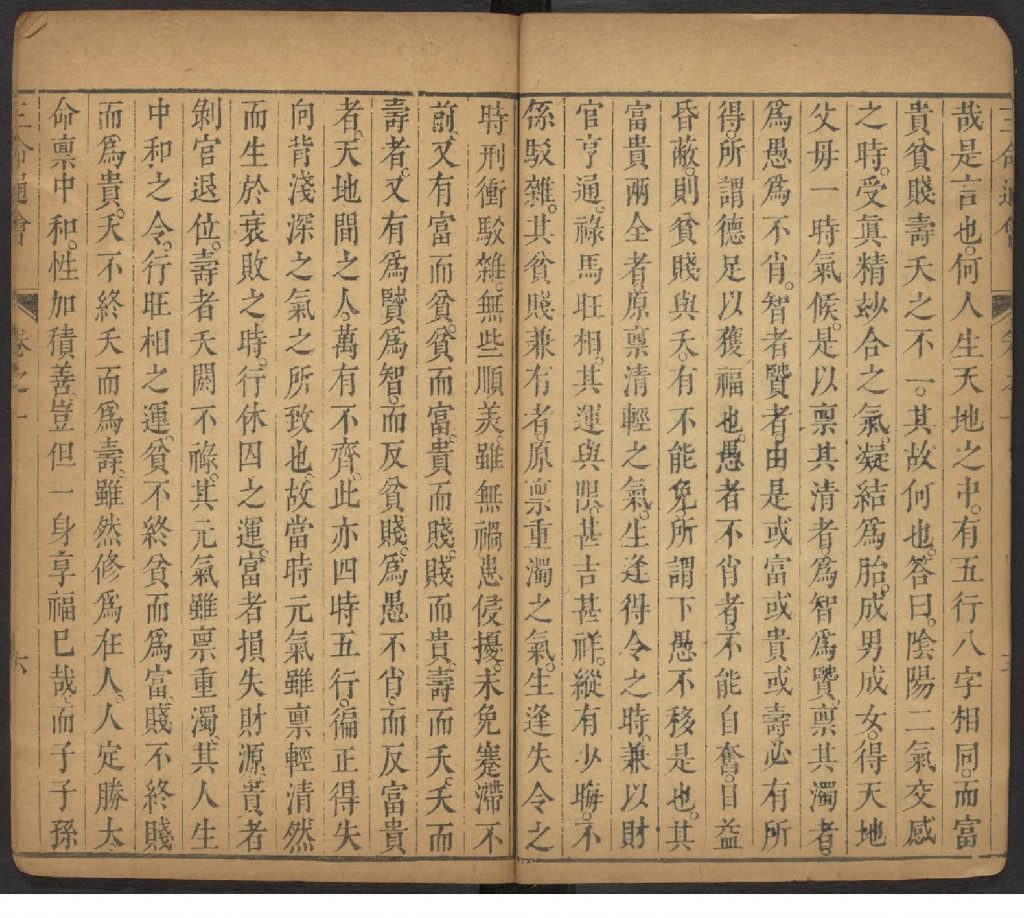 三命通會 卷之一 五
哉是言也。何人生天地之中。有五行八字相同。而富
貴貧賤壽夭之不一。其故何也。答曰。陰陽二氣交感
之時。受眞精妙合之氣。凝結爲胎。成男成女。得天地
父毋一時氣候。是以禀其清者。爲智爲賢。禀其濁者。
爲愚爲不肖。智者賢者。由是或富或貴或壽。必有所
得。所謂德足以獲福也。愚者不肖者。不能自奮。日益
昏蔽。則貧賤與夭。有不能免。所謂下愚不移是也。其
富貴兩全者。原禀清輕之氣。生逢得令之時。兼以財
官亨通。祿馬旺相。其運與限。甚吉甚祥。縱有少晦。不
係駁雜。其貧賤兼有者。原禀重濁之氣。生逢失令之
時。刑衝駁雜。無些順美。雖無禍患侵擾。未免蹇滯不
前。又有富而貧。貧而富。貴而賤。賤而貴。壽而夭。夭而
壽者。又有爲賢爲智。而反貧賤。爲愚不肖。而反富貴
者。天地間之人。萬有不齊。此亦四時五行。偏正得失
向背淺深之氣之所致也。故當時元氣雖禀輕清。然
而生於衰敗之時。行休囚之運。富者損失財源。貴者
剝官退位。壽者夭閼不祿。其元氣雖禀重濁。其人生
中和之令。行旺相之運。貧不終貧而爲富。賤不終賤
而爲貴。夭不終夭而爲壽。雖然修爲在人。人定勝天
命禀中和。性加積善。豈但一身享福巳哉。而子子孫
三命通會 卷之一 六